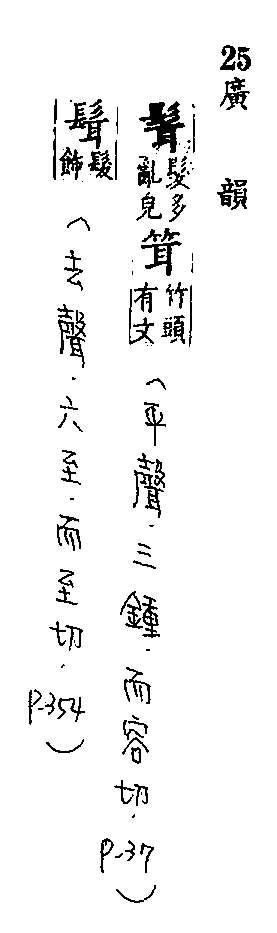 25廣韻
髶髮多亂皃茸竹頭有文(平聲.三鍾.而容切.P.37)
髶髮飾(去聲.六至.而至切.P.354)